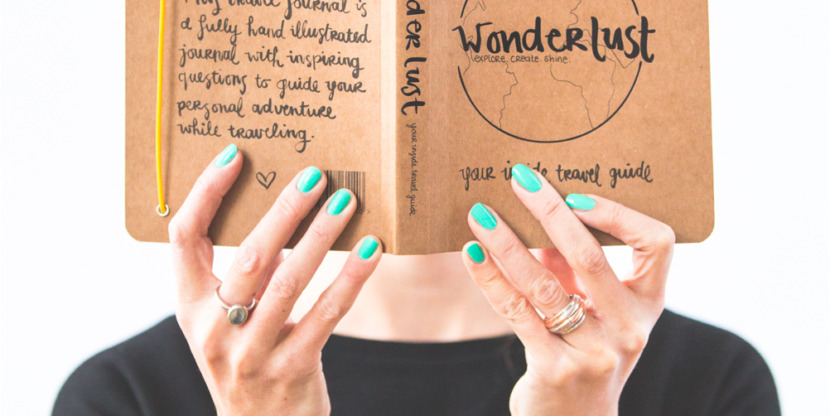 travel journal is
a fully hand illustrated
journal with inspiring
questions to guide your
personal adventure
while traveling.
der lust
your inside travel guide
wonderlust
explore. create. shine.
your inside travel guide